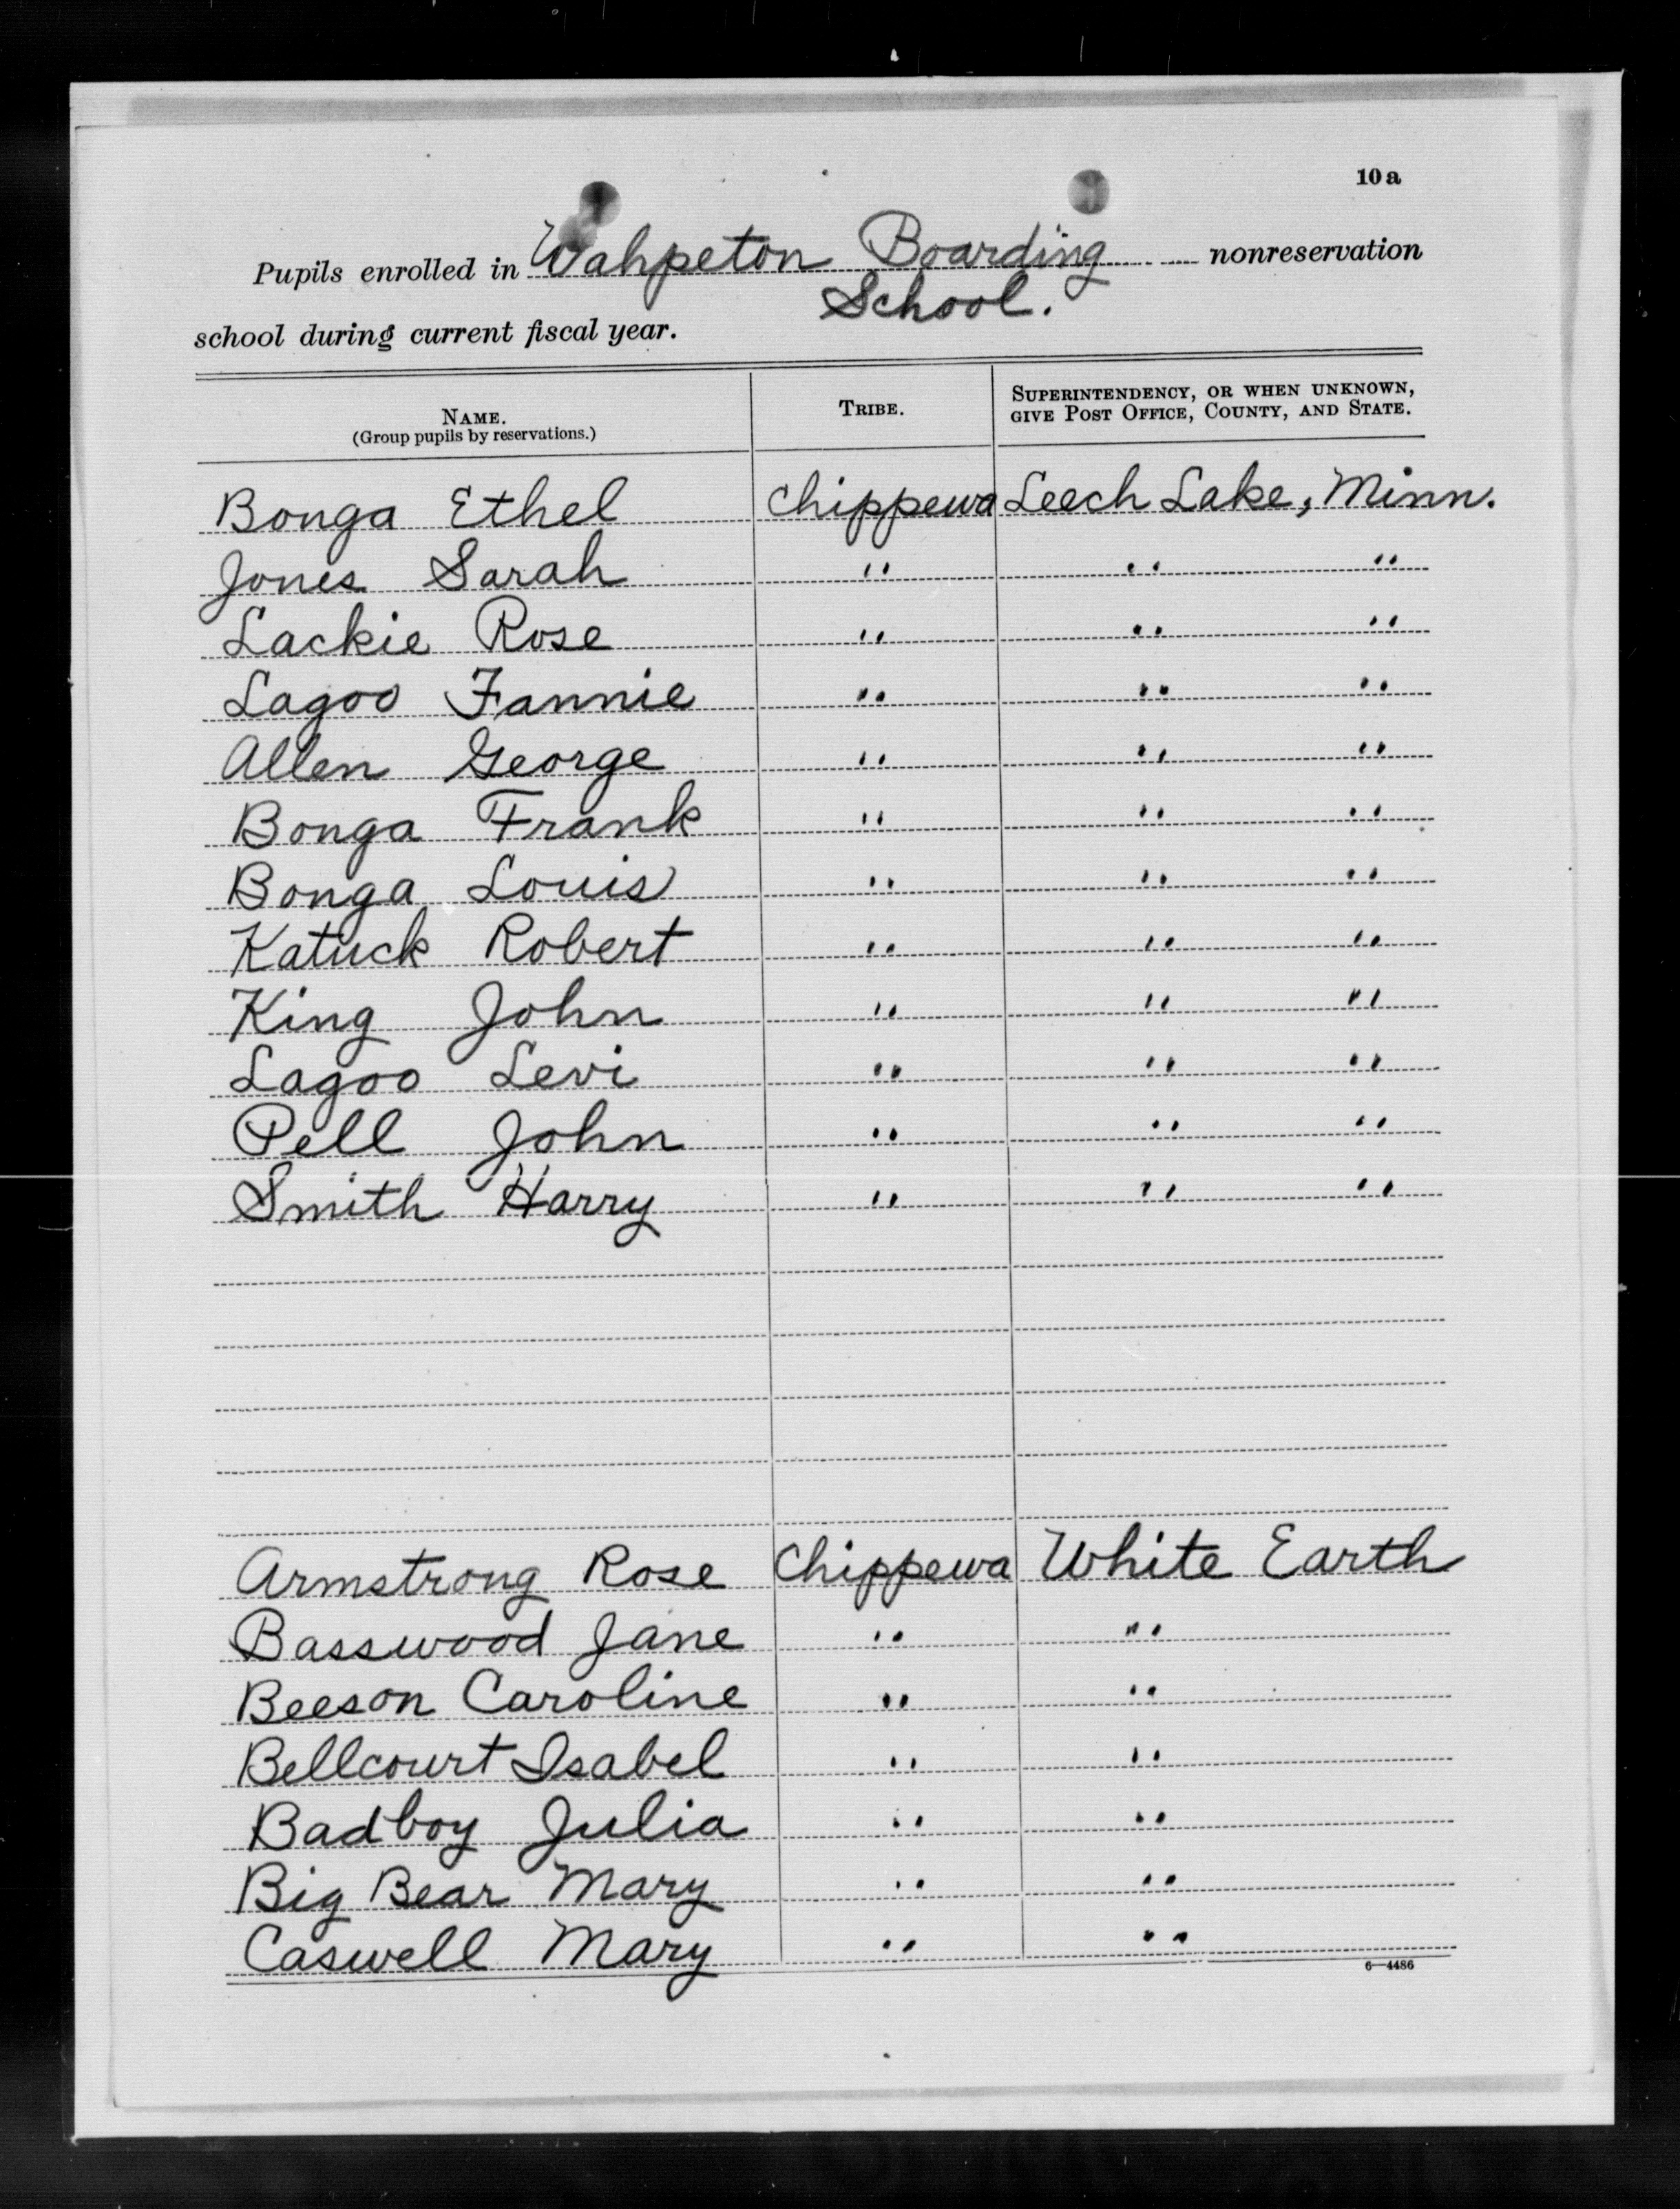 10a
Pupils enrolled in Wahpeton Boarding nonreservation
School.
school during current fiscal year.
NAME. TRIBE. SUPERINTENDENCY, OR WHEN UNKNOWN,
(Group pupils by reservations.) GIVE POST OFFICE, COUNTY, AND STATE.
Bonga Ethel Chippewa Leech Lake, Minn.
Jones Sarah " " "
Lackie Rose " " "
Lagoo Fannie " " "
Allen George " " "
Bonga Frank " " "
Bonga Louis " " "
Katuck Robert " " "
King John " " "
Lagoo Levi " " "
Pell John " " "
Smith Harry " " "
Armstrong Rose Chippewa White Earth
Basswood Jane " "
Beeson Caroline " "
Bellcourt Isabel " "
Badboy Julia " "
Big Bear Mary " "
Caswell Mary " "
6—4486